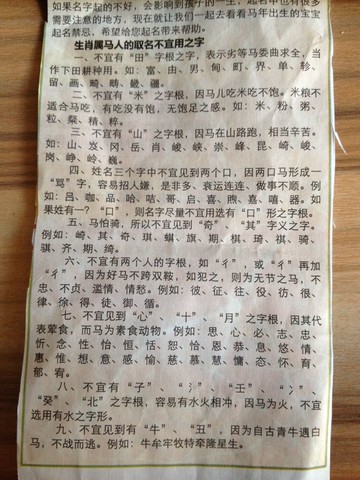 如果名字起的不好，会影响到孩子的一生，起名中也有很多
需要注意的地方，现在就让我们一起去看看马年出生的宝宝
起名禁忌，希望给您起名带来帮助。
生肖属马人的取名不宜用之字
一、不宜有“田”字根之字，表示劣等马委曲求全，当
作下田耕种用。如：富、由、男、甸、町、界、单、轸、
留、画、畸、畴、畿、疆。
二、不宜有“米”之字根，因马儿吃米吃不饱。米粮不
适合马吃，有吃没有饱，无饱足之感。如：米、粉、粥、
粒、粲、精、粹。
三、不宜有“山”之字根，因马在山路跑，相当辛苦。
如：山、岌、冈、岳、肖、峻、峡、崇、峰、昆、崎、峻、
岗、峥、岭、巍。
四、姓名三个字中不宜见到两个口，因两口马形成一
“骂”字，容易招人嫌，是非多、衰运连连、做事不顺。例
如：吕、咖、品、哈、咕、哥、启、喜、煦、嘉、嘻、器。如
果姓有一？“口”，则名字尽量不宜用选有“口”形之字根。
五、马怕骑，所以不宜见到“奇”、“其”字义之字。
例如：崎、其、奇、琪、骐、旗、期、棋、琦、祺、骑、
骐、齐、期、绮。
六、不宜有两个人的字根，如“彳”，或“彳”再加
“彳”，因为好马不跨双鞍，如犯之，则为无节之马，不
忠、不贞、滥情、情愁。例如：彼、征、往、役、彷、很、
律、徐、得、徒、御、循。
七、不宜见到“心”、“忄”、“月”之字根，因其代
表荤食，而马为素食动物。例如：思、心、必、志、忠、
忻、念、性、怡、恒、恬、恕、恰、恩、恭、息、悠、情、
惠、惟、想、意、感、愉、慈、慕、慧、慵、恣、怀、育、
郁、宥。
八、不宜有“子”、“氵”、“壬”、“冫”、“
癸”、“北”之字根，容易有水火相冲，因马为火，不宜
选用有水之字形。
九、不宜见到有“牛”、“丑”，因为自古青牛遇白
马，不战而逃。例如：牛牟牢牧特牵隆星生。